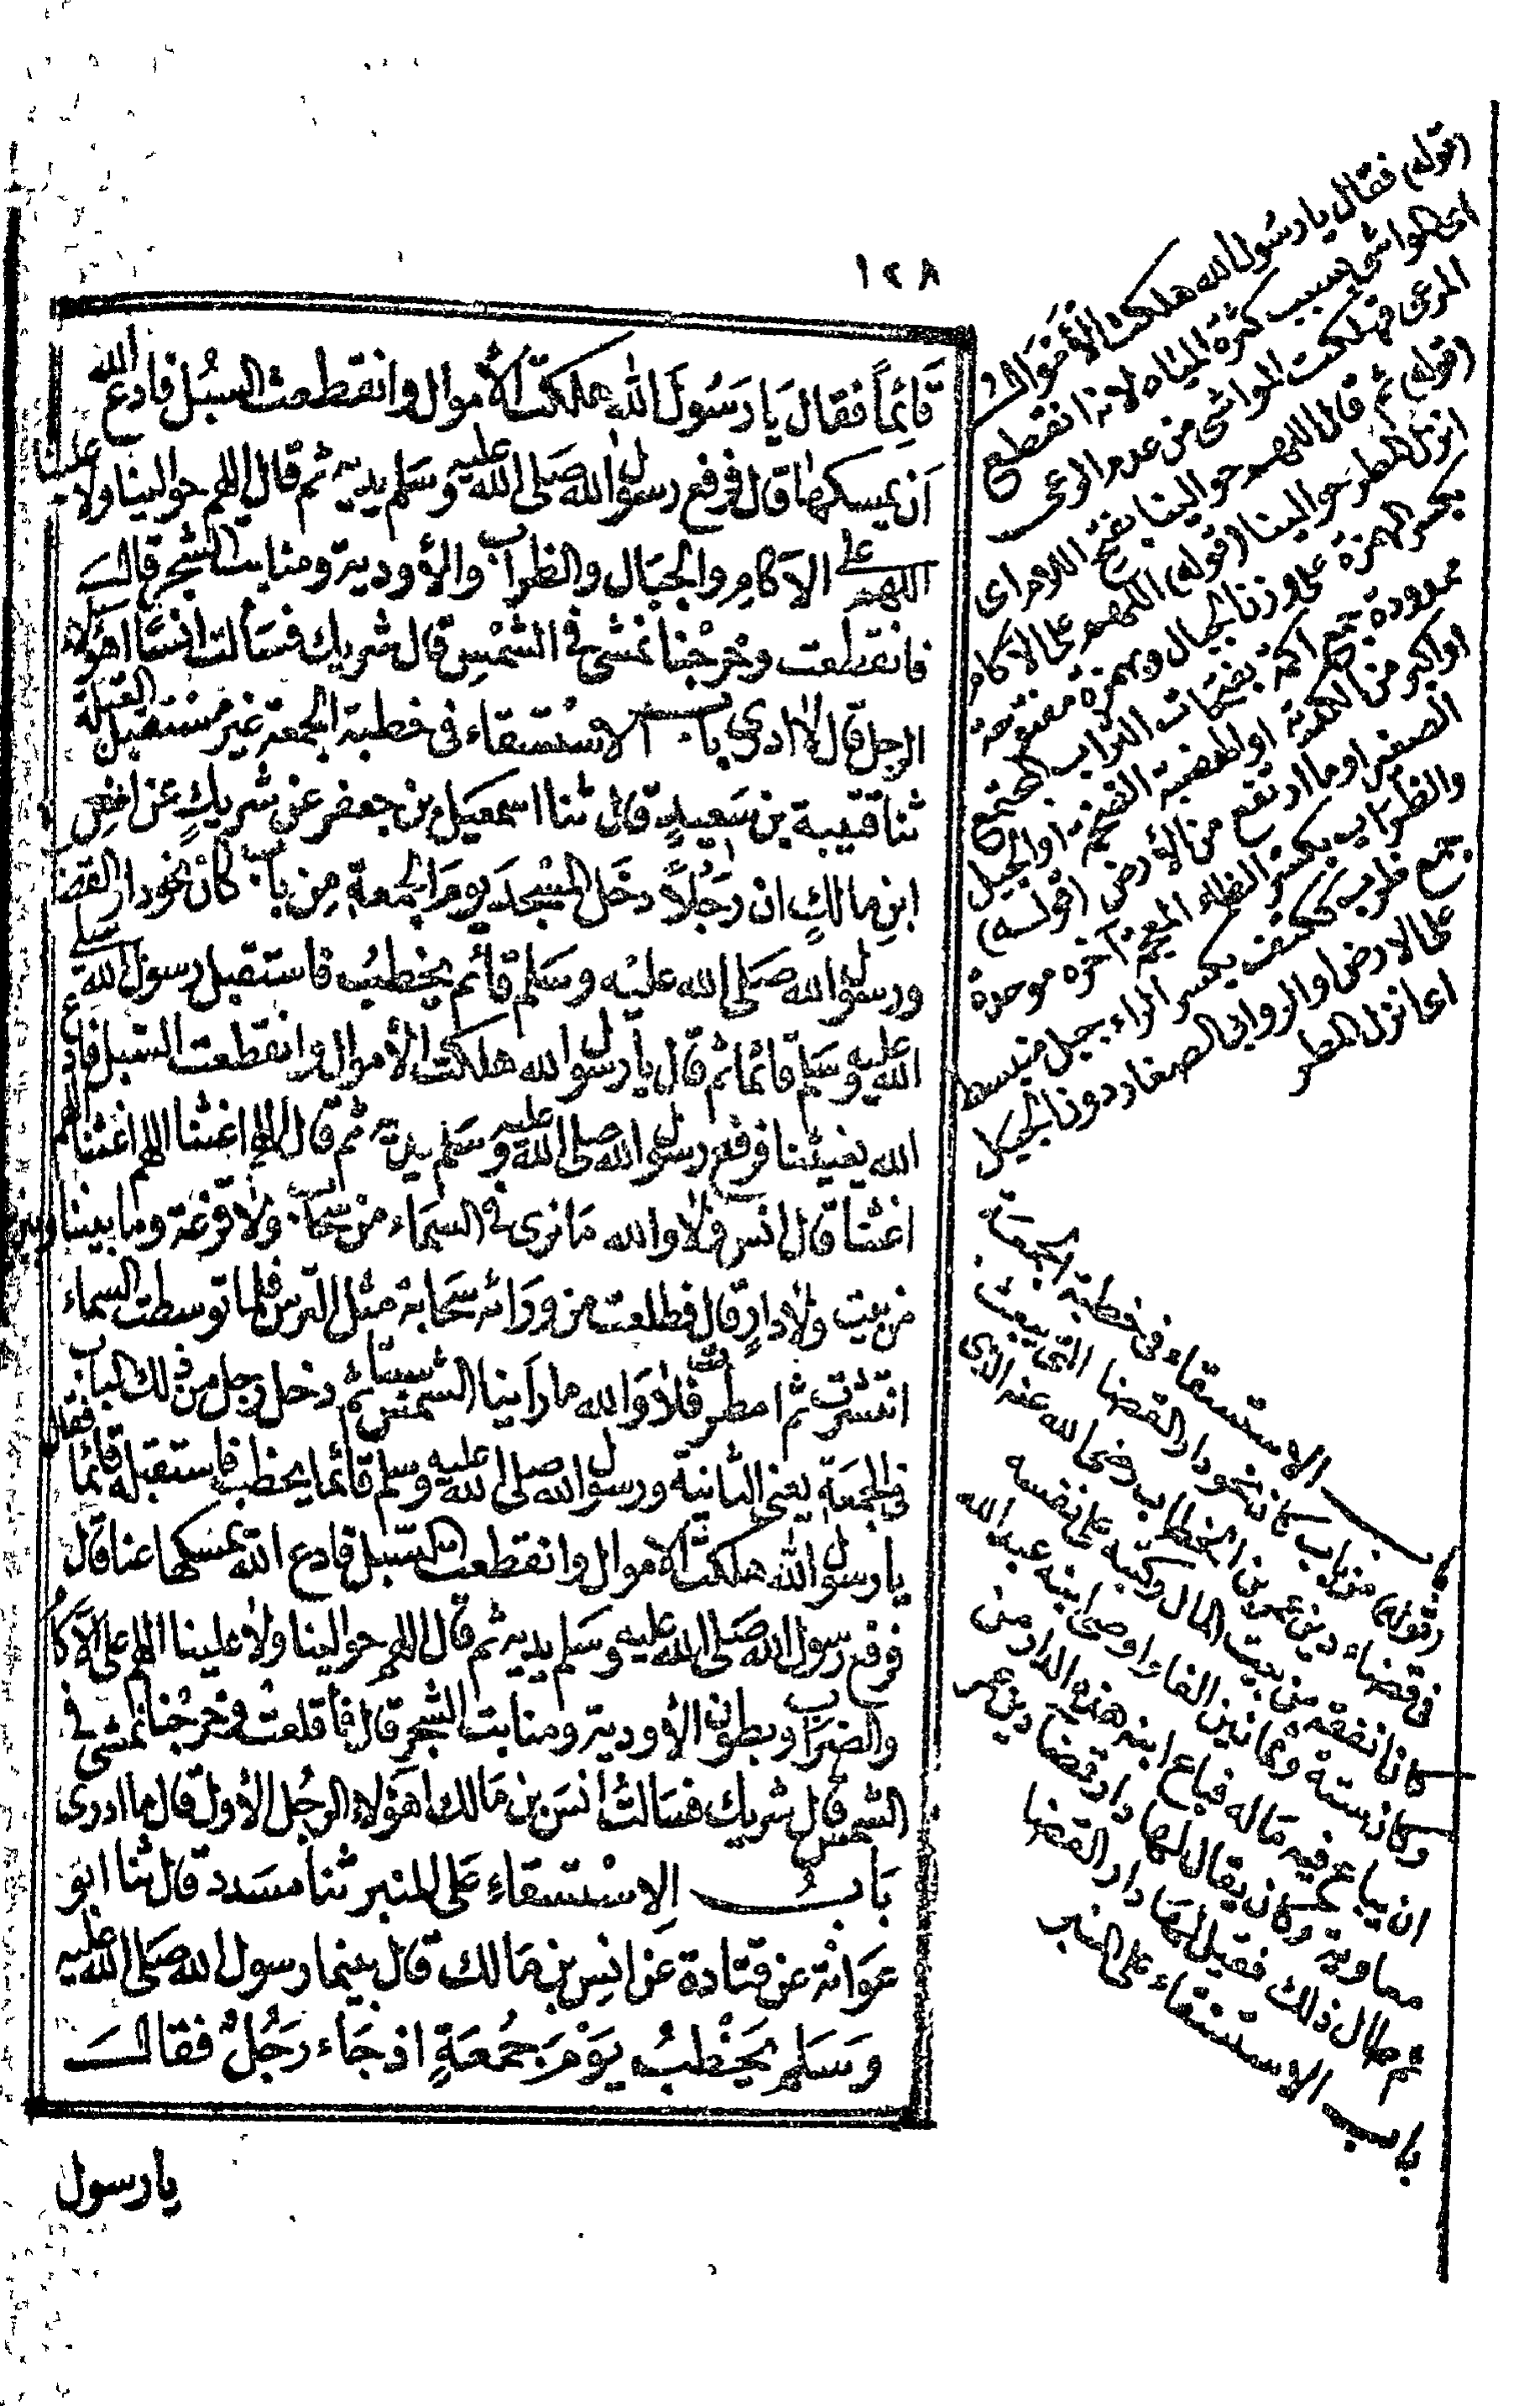 ١٢٨
قَائِماً فقال يَا رَسُولَ الله هلكت الأموال وانقطعت السبُل فادع الله
اَن يمسكها قال فرفع رسول الله صَلى الله عليه وسَلم يديه ثم قال اللهم حوالينا ولا علينا
اللهم على الاَكامِ والجبَال والظراب والأودية ومنابت الشجر قالـ
فانقطعت وخرجْنا نمشى فى الشمْسِ قال شريك فسَألت انسًا اهو
الرجل قال لا ادرى باب الاسْتسقاء فى خطبة الجمعة غير مستقبل القبلة
ثنا قتيبة بن سَعيدٍ قال ثنا اسمعيَل بن جعفر عن شريكٍ عن انسِ
ابنِ مالكٍ ان رَجُلاً دخَل المسْجدَ يومَ الجمعةِ مِن باب كان نحو دار القضا
ورسول الله صَلى الله عليْه وسَلم قائم يخطبُ فاستقبل رسول الله صلى
الله عليه وسَلم قائما ثم قال يا رسول الله هلكت الأموال وانقطعت السبل فادع
الله يغيثنا فرفع رسول الله صلى الله عليه وسَلم يديه ثم قال اللهم اغثنا اللهم اغثنا اللهم
اغثنا قال انس فلا والله مَا نرى فى السمَاء من سحاب ولا قزعة وما بيننا وبين
من بيت ولا دارٍ قال فطلعت من ورَائه سَحَابة مثل الترس فلما توسطت السماء
انتشرت ثم امطرت فلا وَالله ما رأينا الشمس سبتا ثم دخل رجل من ذلك الباب
فى الجمعَة يعنى الثانية ورسول الله صلى الله عليه وسلم قائما يخطب فاستقبله قائما فقال
يا رسول الله هلكت الاموال وانقطعت السبل فادع الله يمسكها عنا قال
فرفع رسول الله صَلى الله عليه وسَلم يديه ثم قال اللهم حوالينا ولا علينا اللهم على الآكا
والضرَاب وبطون الأودية ومنابت الشجرِ قال فأقلعت وخرجْنا نمشى فى
الشمس قال شريك فسَالت أنسَ بن مَالك أهوَ لا الرجُل الأول قال ما ادرى
بَابُ الاِسْتسقاءِ عَلى المنبر ثنا مسَدد قال ثنا ابو
عوَانة عن قتادة عَن انسِ بن مَالك قال بينما رسول الله صَلى الله عليه
وسَلم يخطبُ يَوْمَ جمُعَةٍ اذ جَاء رَجُلٌ فقالـ
يا رسول
(قوله) فقال يا رسُول الله هلكت الأموال
اى المواشى بسبب كثرة المياه لانه انقطع
المرعى فهلكت المواشى من عدم الرعى
(قوله) ثم قال اللهم حوالينا بفتح اللام اى
انزل المطر حوالينا (قوله) اللهم على الاكام
بكسر الهمزة على وزن الجبال وبهمزة مفتوحة
ممدودة جمع اكمة بفتحات التراب المجتمع
او اكبر من الكدية او الهضبة الضخمة او الجبل
الصغير او ما ارتفع من الأرض (قوله)
والظراب بكسر الظاء المعجمة اخره موحدة
جمع ظرب ككتف بكسر الراء جبل منبسط
على الارض او الروابى الصغار دون الجبل
اى انزل المطر
باب الاستسقاء فى خطبة الجمعة
(قوله) من باب كان نحو دار القضا التى بيعت
فى قضاء دين عمر بن الخطاب رضى الله عنه الذى
كان انفقه من بيت المال وكتبه على نفسه
وكان ستة وثمانين الفا واوصى ابنه عبد الله
ان يباع فيه مَاله فباع ابنه هذه الدار من
معاوية وكان يقال لها دار قضا دين عمر
ثم طال ذلك فقيل لها دار القضا
باب الاستسقاء على المنبر